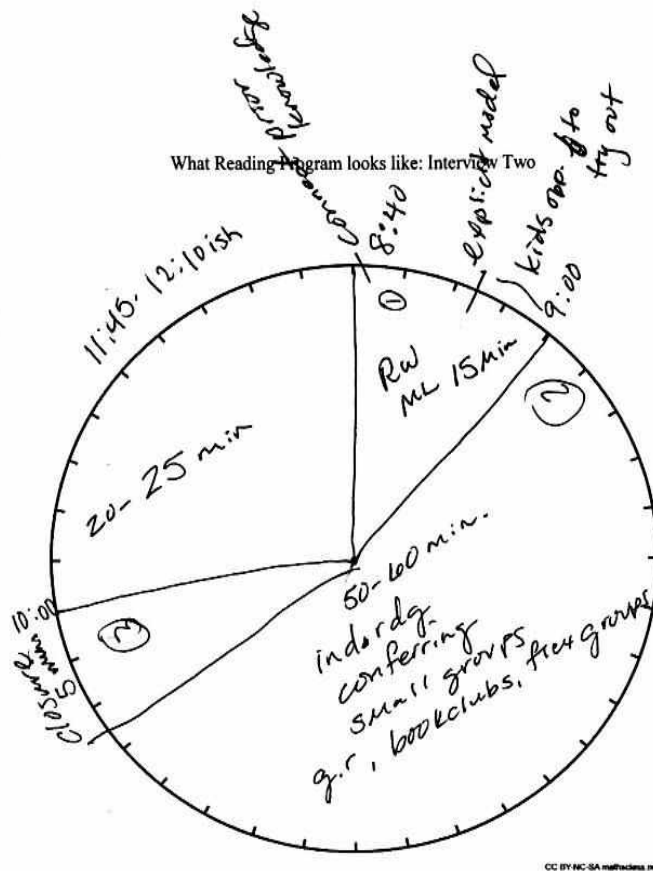 What Reading Program looks like: Interview Two
Connect prior
knowledge
8:40
explicit model
kids opp. to
try out
9:00
①
RW
ML 15 min
②
50-60 min.
ind. rdg.
conferring
small groups
g.r, bookclubs, flex groups
③
10:00
closure
5 min
20-25 min
11:45-12:10ish
CC BY-NC-SA mathsclass.n